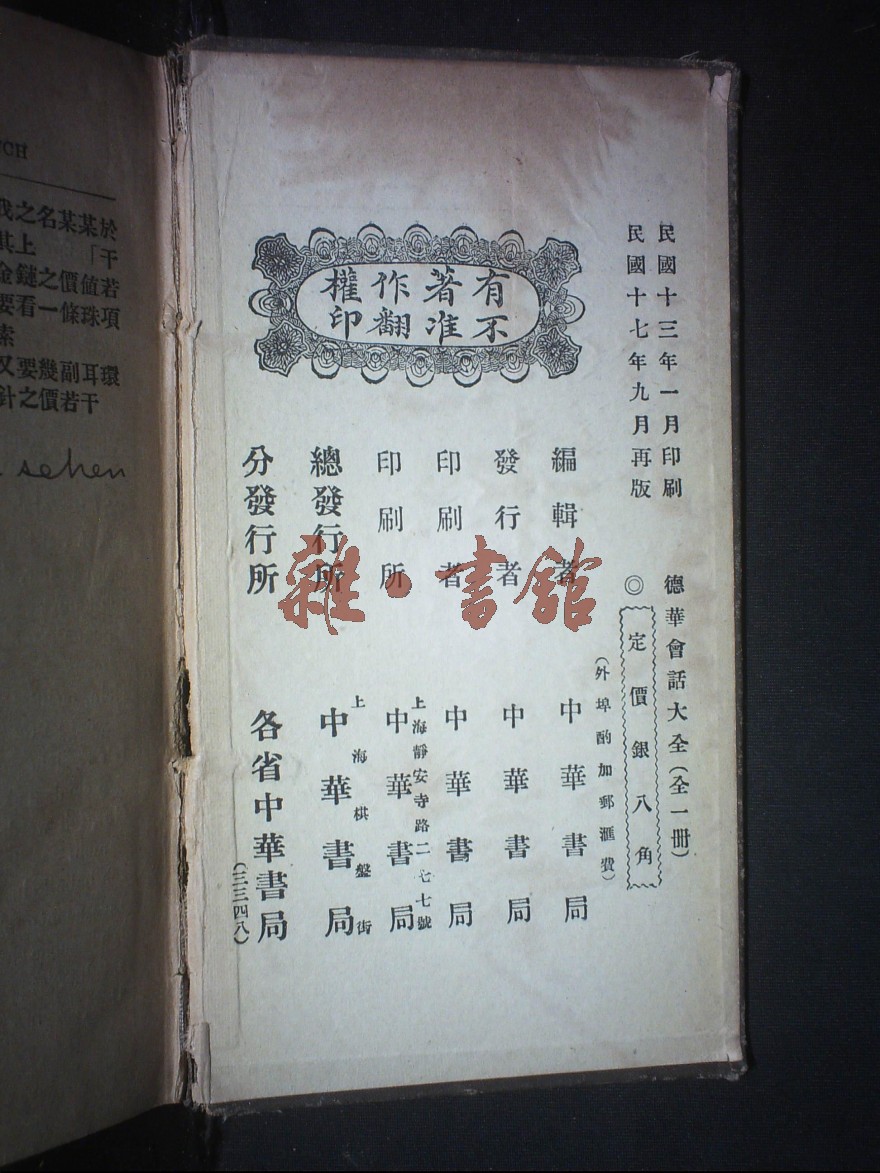 民國十三年一月印刷
民國十七年九月再版
德華會話大全(全一冊)
◎定價銀八角
(外埠酌加郵滙費)
有不著准作翻權印
編輯者 中華書局
發行者 中華書局
印刷者 中華書局
印刷所 上海靜安寺路二七七號 中華書局
總發行所 上海棋盤街 中華書局
分發行所 各省中華書局
(三三四八)
我之名某某於
其上 「干
金鏈之價值若
要看一條珠項
索
又要幾副耳環
針之價若干
sehen
雜·書館